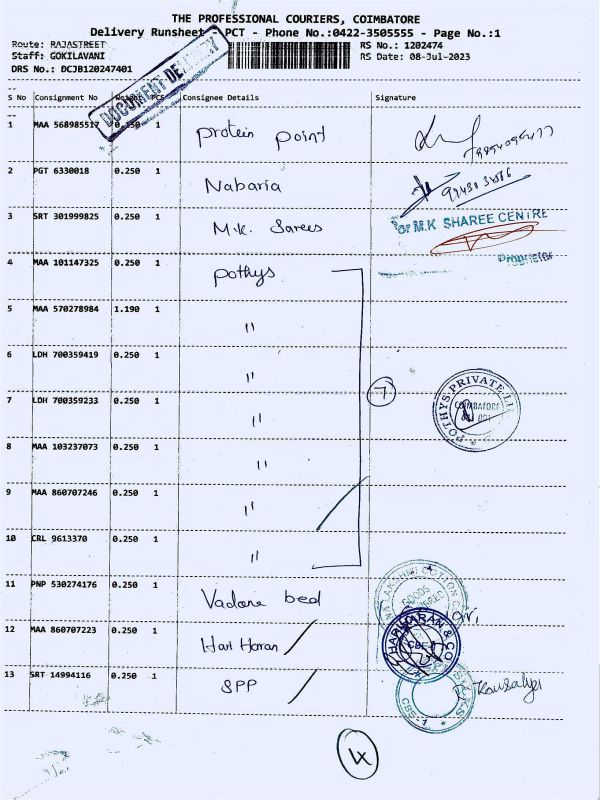 THE PROFESSIONAL COURIERS, COIMBATORE
Delivery Runsheet - PCT - Phone No.:0422-3505555 - Page No.:1
Route: RAJASTREET RS No.: 1202474
Staff: GOKILAVANI RS Date: 08-Jul-2023
DRS No.: DCJB120247401
DOCUMENT DELIVERY
S No Consignment No Weight PCS Consignee Details Signature
1 MAA 568985517 0.350 1 Protein point
2 PGT 6330018 0.250 1 Nabaria
3 SRT 301999825 0.250 1 M.K. Sarees For M.K SHAREE CENTRE
Proprietor
4 MAA 101147325 0.250 1 Pothys
5 MAA 570278984 1.190 1 "
6 LDH 700359419 0.250 1 "
7 LDH 700359233 0.250 1 " 7 POTHYS PRIVATE LI COIMBATORE
8 MAA 103237073 0.250 1 "
9 MAA 860707246 0.250 1 "
10 CRL 9613370 0.250 1 "
11 PNP 530274176 0.250 1 bed LAKSHMI COTTON GOODS
12 MAA 860707223 0.250 1 Hari Haran HARIHARAN & CO
13 SRT 14994116 0.250 1 SPP CBE-1 Kousalya